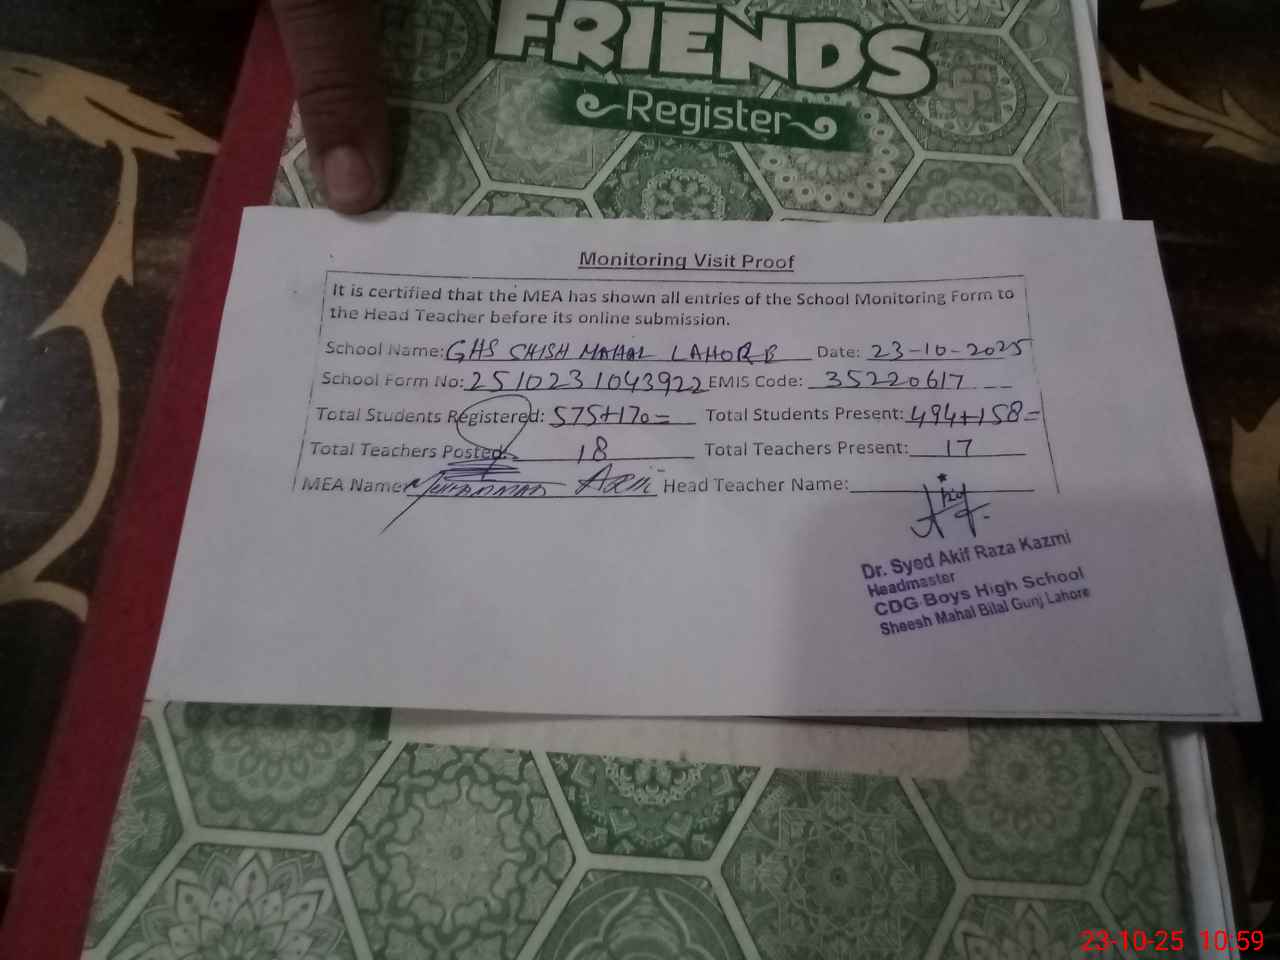 FRIENDS
Register
Monitoring Visit Proof
It is certified that the MEA has shown all entries of the School Monitoring Form to
the Head Teacher before its online submission.
School Name: GHS SHISH MAHAL LAHORE Date: 23-10-2025
School Form No: 2510231043922 EMIS Code: 35220617
Total Students Registered: 575+170= Total Students Present: 494+158=
Total Teachers Posted: 18 Total Teachers Present: 17
MEA Name: Muhammad Head Teacher Name:
Dr. Syed Akif Raza Kazmi
Headmaster
CDG Boys High School
Sheesh Mahal Bilal Gunj Lahore
23-10-25 10:59